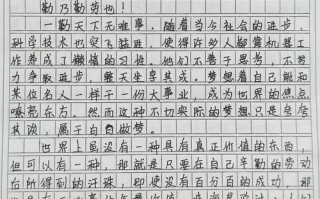 勤乃勤劳也！
勤天下无难事。随着当今社会的进步，
科学技术也突飞猛进，使得许多人都靠机器工
作养成了懒惰的习性。他们不善于思考，不努
力争取进步，整天坐享其成。梦想着自己能和
某位名人一样干一份大事业，成为世界的焦点
嘹亮东方。然而这种不切实际的梦想只是
其谈，属于白白做梦。
世界上虽没有一种具有真正价值的东西，
但可以有一种，那就是只要在自己辛勤的劳动
后所得到的汗珠，即使没有百分百的成功，那